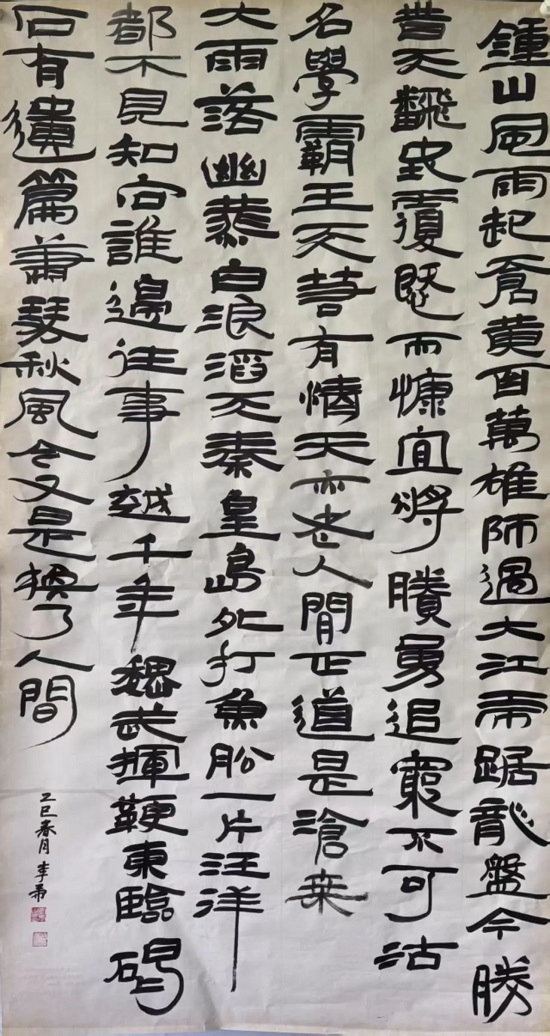 鍾山風雨起蒼黃百萬雄師過大江虎踞龍盤今勝
昔天飜地覆慨而慷宜將賸勇追窮不可沽
名學霸王天若有情天亦老人間正道是滄桒
大雨落幽燕白浪滔天秦皇島外打魚船一片汪洋
都不見知向誰邊往事越千年魏武揮鞭東臨碣
石有遺篇蕭瑟秋風今又是換了人間
乙巳春月 李